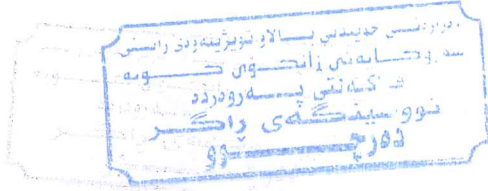 وەزارەتی خویندنی بالاو تویژینەوەی زانستی
سەرۆکایەتی زانکۆی کۆیە
فاکەلتی پەروەردە
نووسینگەی راگر
دەرچوو